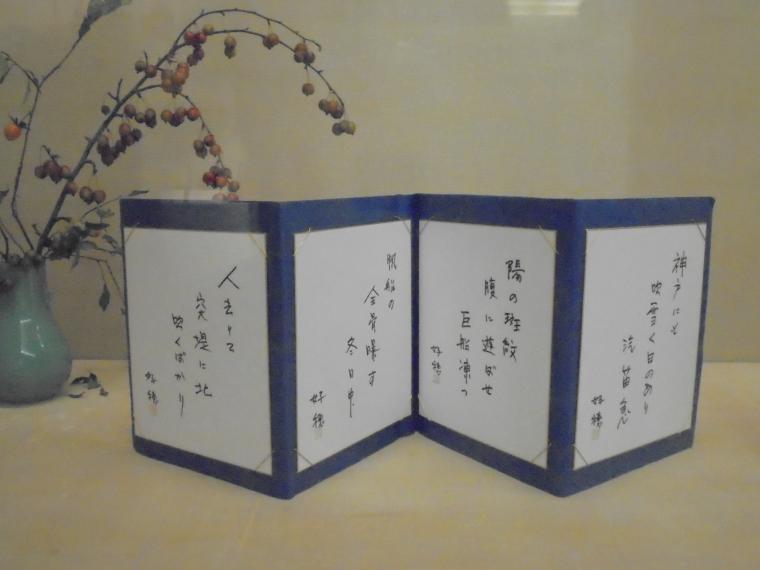 神戸にも
吹雪く日のあり
汽笛急
好穂
陽の斑紋
腹に遊ばせ
巨船凍つ
好穂
帆船の
全骨曝す
冬日中
好穂
人去りて
突堤に北
吹くばかり
好穂